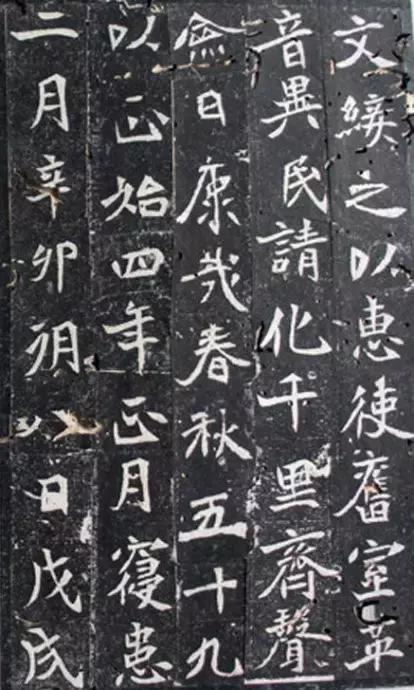 文綏之以惠使舊室革
音異民請化千里齊聲
僉曰康哉春秋五十九
以正始四年正月寑患
二月辛卯朔八日戊戌